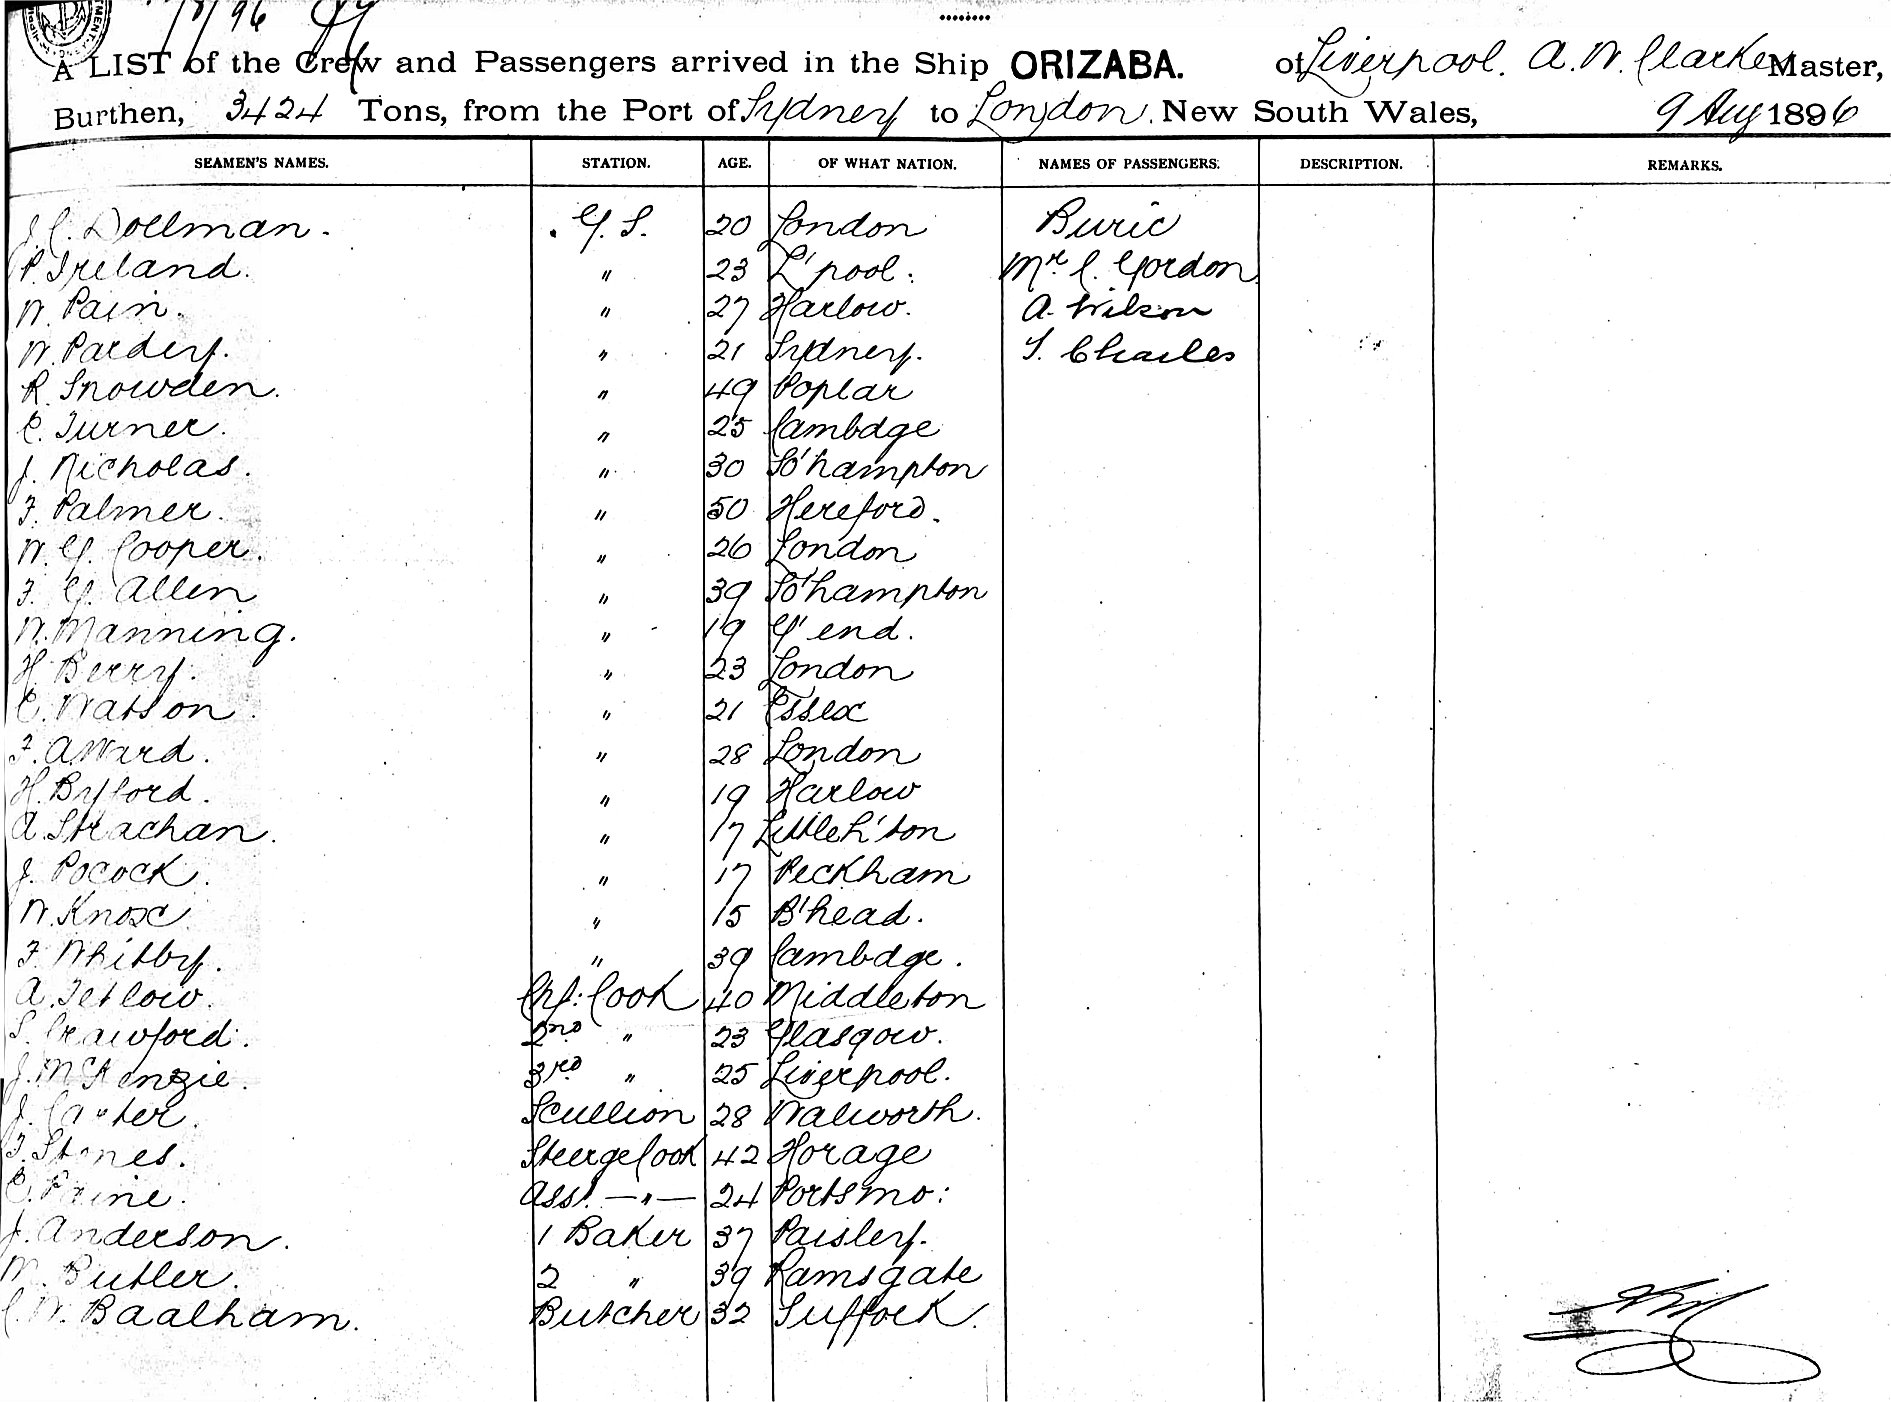 7/8/96
A LIST of the Crew and Passengers arrived in the Ship ORIZABA. of Liverpool. A. W. Clarke Master,
Burthen, 3424 Tons, from the Port of Sydney to London. New South Wales, 9 Aug 1896
SEAMEN'S NAMES. STATION. AGE. OF WHAT NATION. NAMES OF PASSENGERS. DESCRIPTION. REMARKS.
J. C. Dollman. G. S. 20 London Buric
P. Ireland. " 23 L'pool: Mr. C. Gordon
W. Pain. " 27 Harlow. A. Wilson
W. Pardey. " 21 Sydney. S. Charles
R. Snowden. " 49 Poplar
C. Turner. " 25 Cambdge
J. Nicholas. " 30 So'hampton
F. Palmer. " 50 Hereford.
W. G. Cooper. " 26 London
F. G. Allen " 39 So'hampton
W. Manning. " 19 G'end.
H. Berry. " 23 London
C. Watson. " 21 Essex
F. A. Ward. " 28 London
H. Byford. " 19 Harlow
A. Strachan. " 17 Little h'ton
J. Pocock. " 17 Peckham
W. Knox " 15 B'head.
F. Whitby. " 39 Cambdge.
A. Tetlow. Chf: Cook 40 Middleton
S. Crawford. 2nd " 23 Glasgow.
J. McKenzie. 3rd " 25 Liverpool.
J. Carter. Scullion 28 Walworth.
F. Stones. Steerge Cook 42 Horage
C. Paine. Asst. —"— 24 Portsmo:
J. Anderson. 1 Baker 37 Paisley.
W. Butler. 2 " 39 Ramsgate
C. W. Baalham. Butcher 32 Suffock.